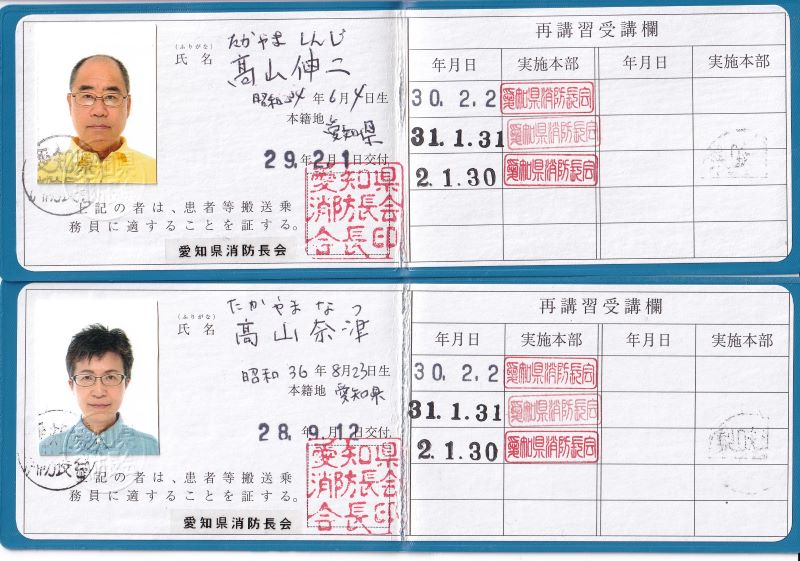 (ふりがな) たかやま しんじ
氏名 髙山伸二
昭和34年6月4日生
本籍地 愛知県
29.2.1交付
愛知県
消防長会
会長印
上記の者は、患者等搬送乗
務員に適することを証する。
愛知県消防長会
再講習受講欄
年月日 実施本部 年月日 実施本部
30.2.2 愛知県消防長会
31.1.31 愛知県消防長会
2.1.30 愛知県消防長会
(ふりがな) たかやま なつ
氏名 髙山奈津
昭和36年8月23日生
本籍地 愛知県
28.9.12交付
愛知県
消防長会
会長印
上記の者は、患者等搬送乗
務員に適することを証する。
愛知県消防長会
再講習受講欄
年月日 実施本部 年月日 実施本部
30.2.2 愛知県消防長会
31.1.31 愛知県消防長会
2.1.30 愛知県消防長会